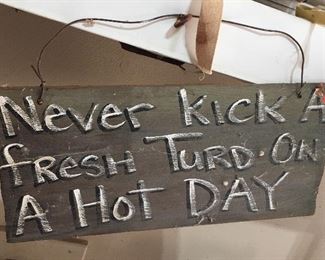 Never kick A
fresh Turd On
A Hot DAY